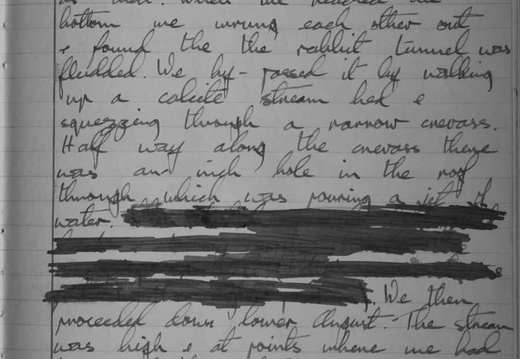 as well. When we reached the
bottom we wrung each other out
& found the the rabbit tunnel was
fludded. We by-passed it by walking
up a calcite stream bed &
squezzing through a narrow crevass.
Half way along the crevass there
was an inch hole in the roof
through which was pouring a jet of
water.
. We then
proceeded down lower August. The stream
was high & at points where we had